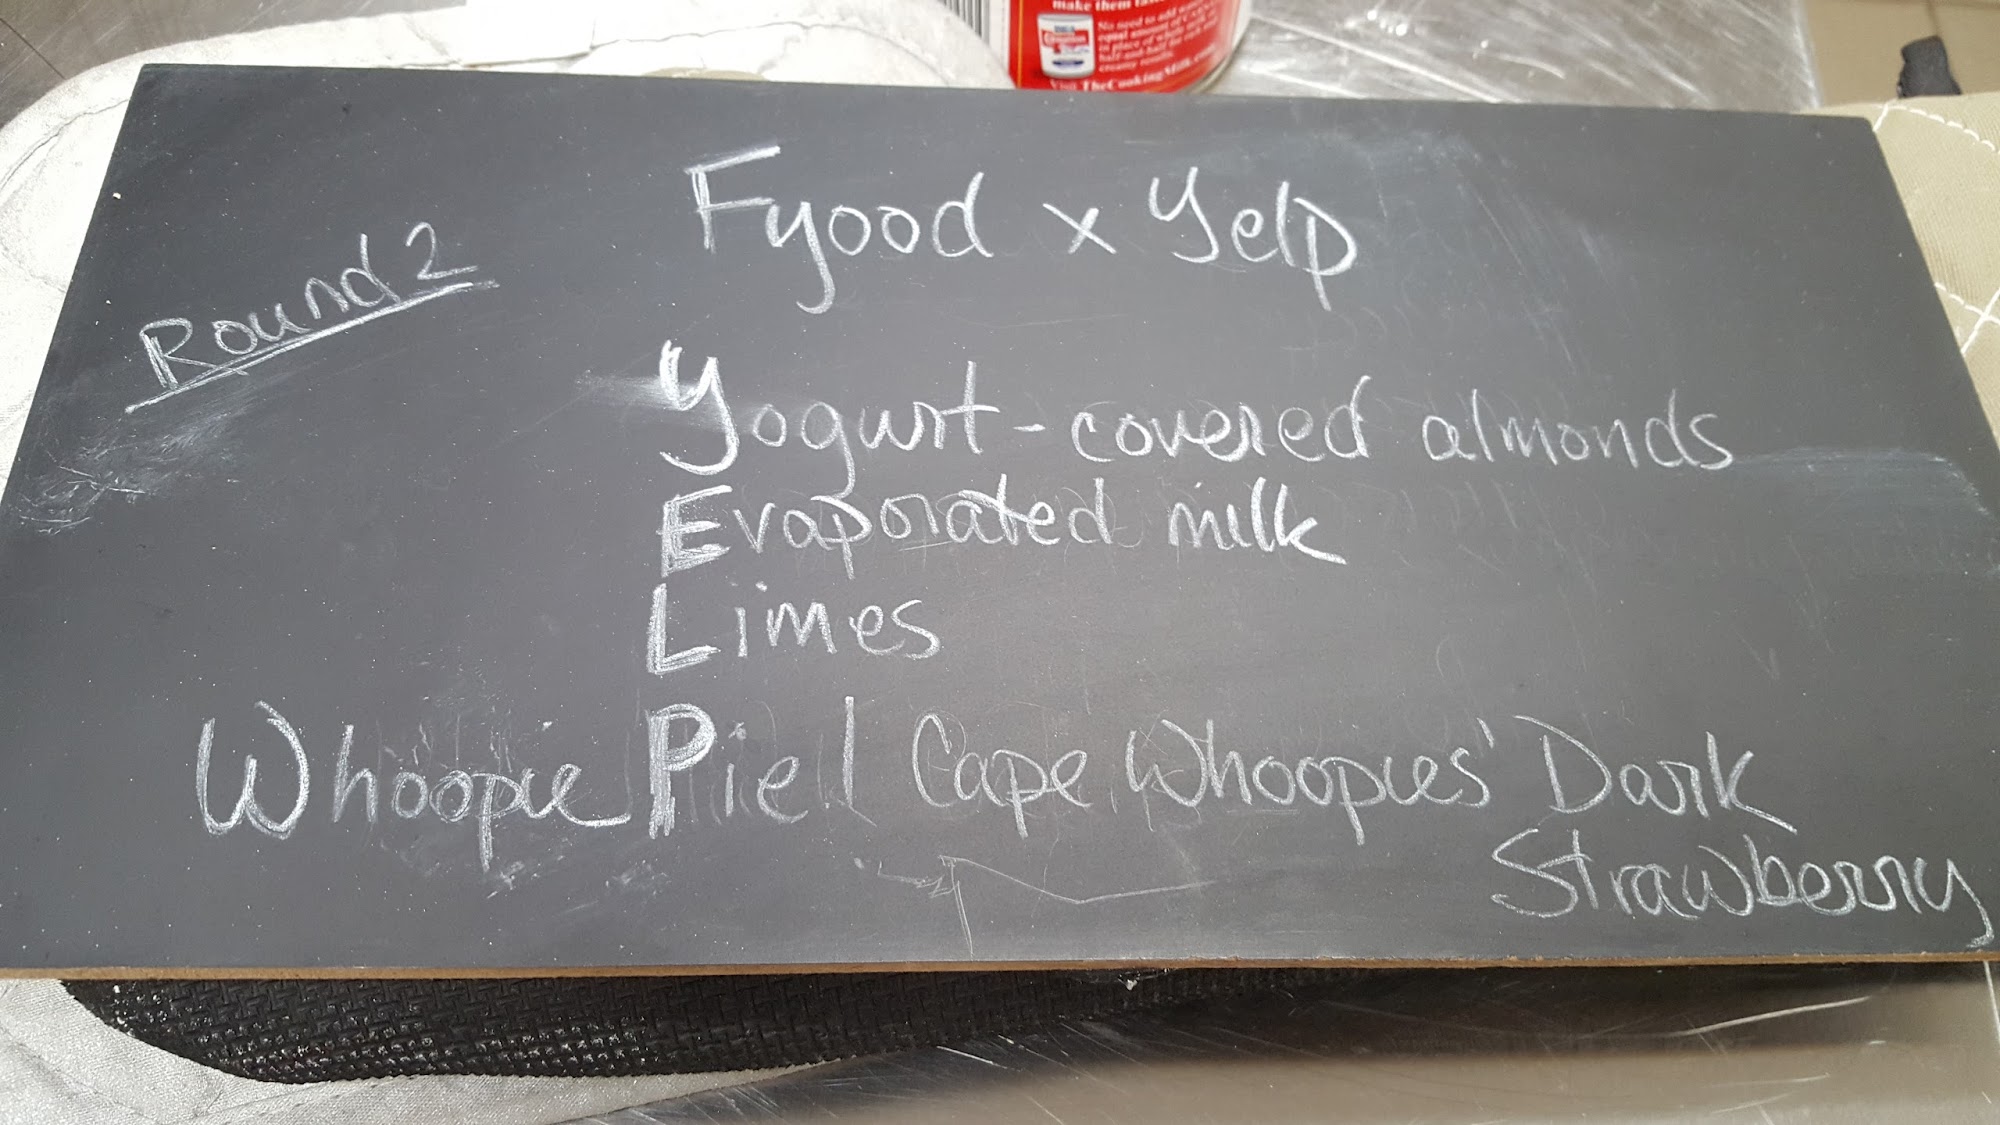 make them
No need to add
equal amount of
in place of whole milk
half and half for rich
creamy results.
Visit TheCookingMilk.com
Fyood x Yelp
Round 2
Yogurt-covered almonds
Evaporated milk
Limes
Whoopie Pie! Cape Whoopies' Dark
Strawberry